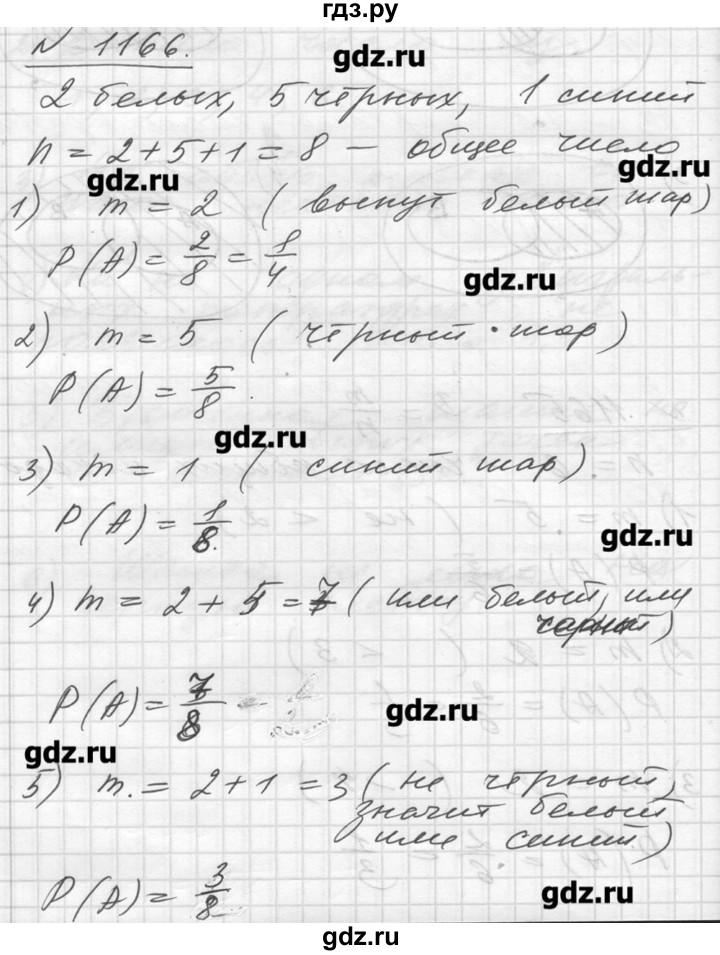 гдз.ру
N 1166.
gdz.ru
2 белых, 5 чёрных, 1 синий
n = 2 + 5 + 1 = 8 — общее число
gdz.ru
gdz.ru
1) m = 2 (вынут белый шар)
P(A) = 2/8 = 1/4
gdz.ru
2) m = 5 (чёрный шар)
P(A) = 5/8.
gdz.ru
3) m = 1 (синий шар).
P(A) = 1/8.
gdz.ru
4) m = 2 + 5 = 7 (или белый, или
чёрный)
P(A) = 7/8
gdz.ru
gdz.ru
5) m. = 2 + 1 = 3 (не чёрный,
значит белый
или синий.)
P(A) = 3/8
gdz.ru
gdz.ru